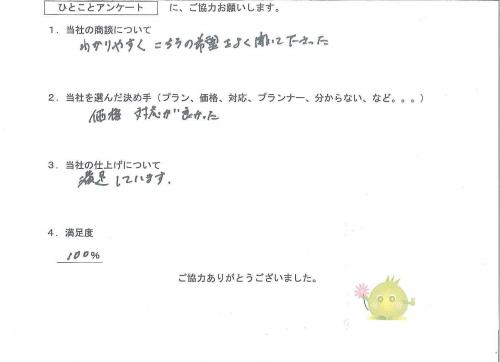 ひとことアンケート に、ご協力お願いします。
1．当社の商談について
わかりやすく こちらの希望をよく聞いて下さった
2．当社を選んだ決め手（プラン、価格、対応、プランナー、分からない、など。。。）
価格 対応が良かった
3．当社の仕上げについて
満足しています.
4．満足度
100%
ご協力ありがとうございました。